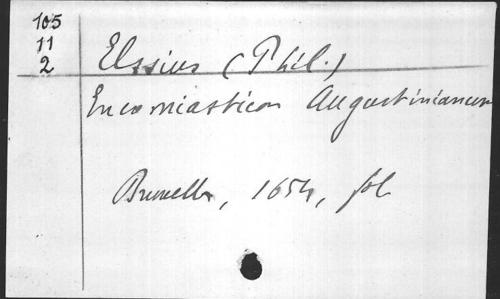 105
11
2
Elssius (Phil.)
Encomiasticon Augustinianum
Bruxellis, 1654, fol